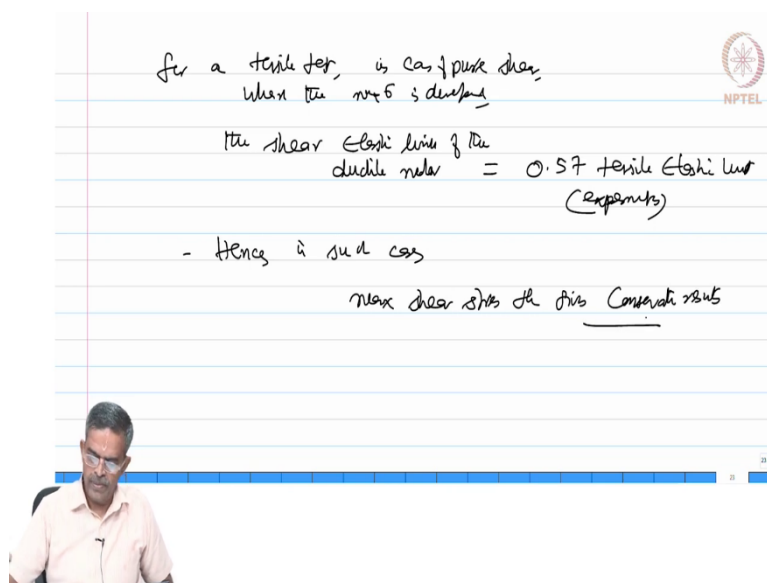 for a tensile test, in case of pure shear,
when the max σ is developed
NPTEL
the shear elastic limit of the
ductile = 0.57 tensile elastic limit
(experiments)
- Hence in such case
max shear stress th gives Conservative results
23
23